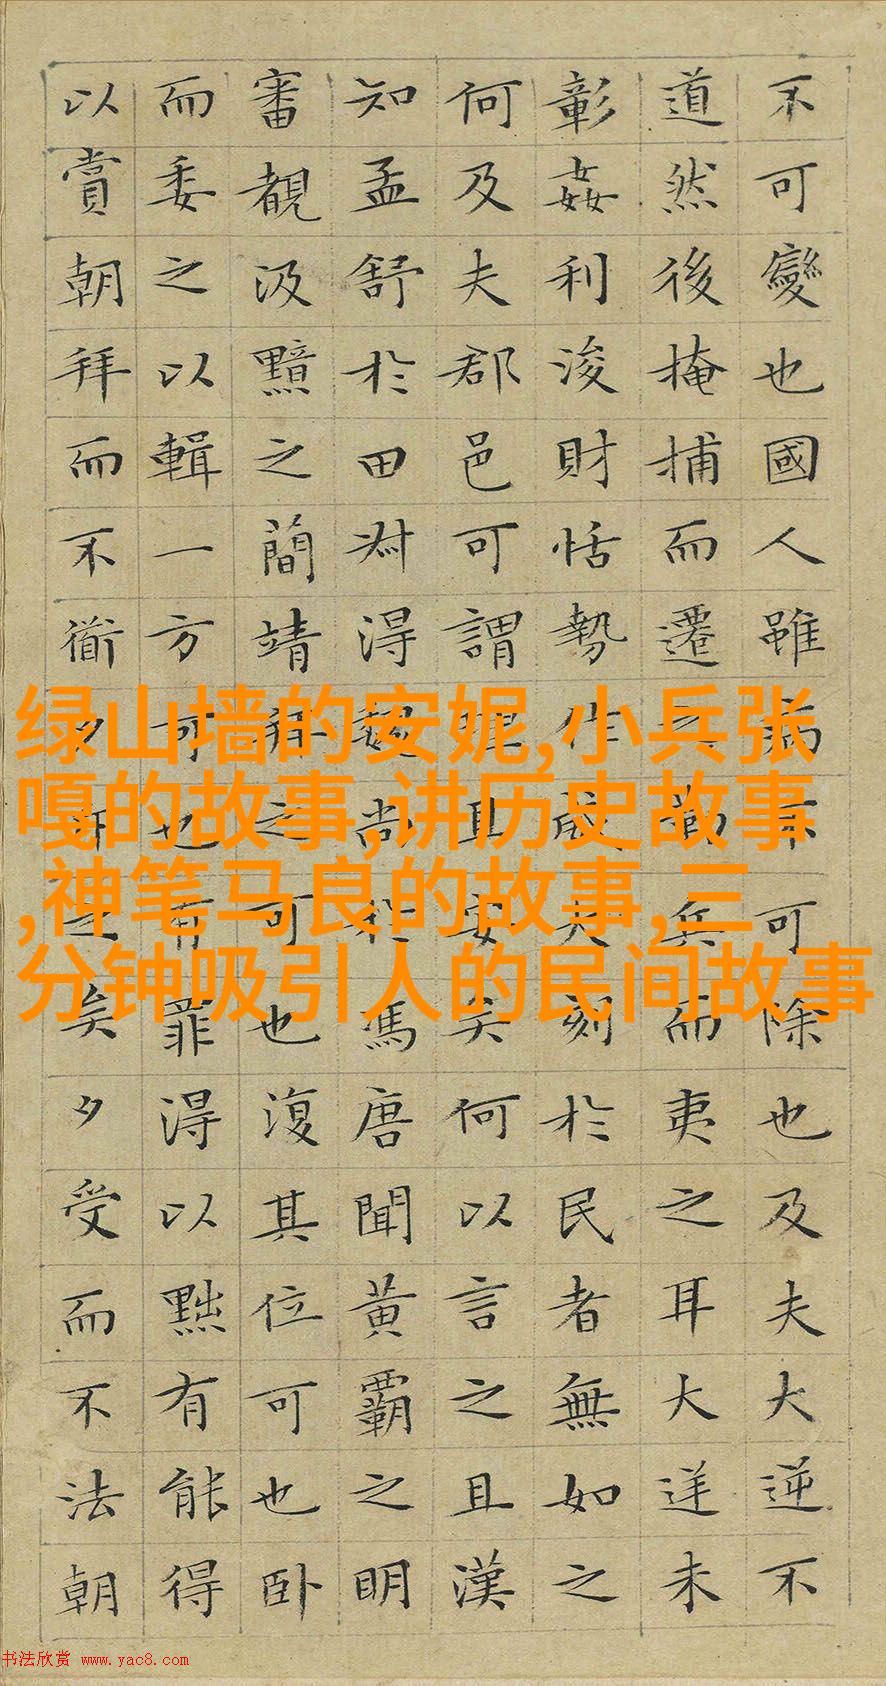 不可變也國人雖病不可除也及夫大逆不
道然後掩捕而遷之勒兵而夷之耳大逆未
彰姦利浚財恬勢作威大刻於民者無如之
何及夫郡邑可謂理且安矣何以言之且漢
知孟舒於田叔得魏尚於馮唐聞黃霸之明
審覩汲黯之簡靖拜之可也復其位可也臥
而委之以輯一方可也有罪得以黜有能得
以賞朝拜而不衟夕斥之矣夕受而不法朝
绿山墙的安妮,小兵张
嘎的故事,讲历史故事
,神笔马良的故事,三
分钟吸引人的民间故事
书法欣赏 www.yac8.com